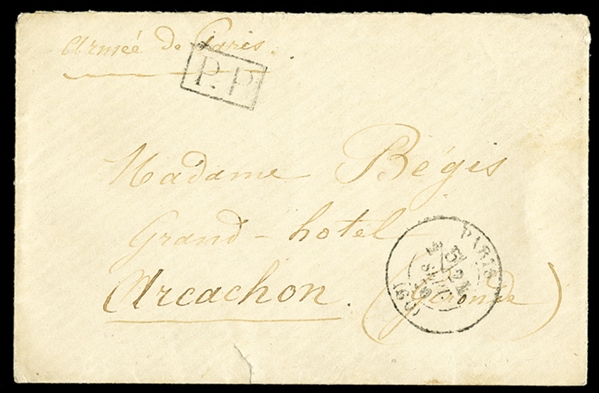 Armée de Paris.
P.P
Madame Bégis
Grand-hotel
Arcachon. (Gironde)
PARIS
SEPT
(60)